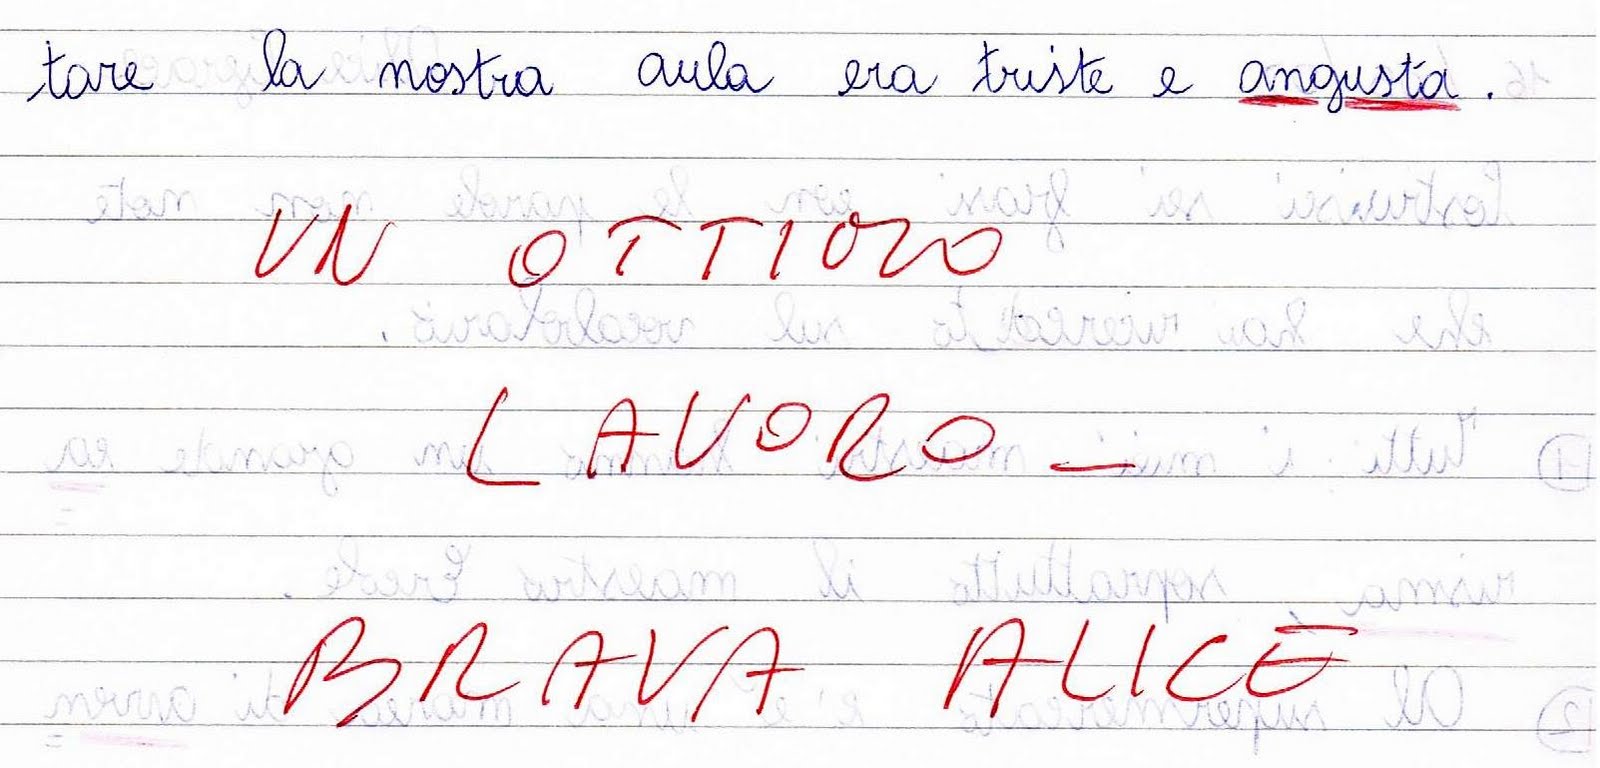 tare la nostra aula era triste e angusta.
UN OTTIMO
LAVORO_
BRAVA ALICE